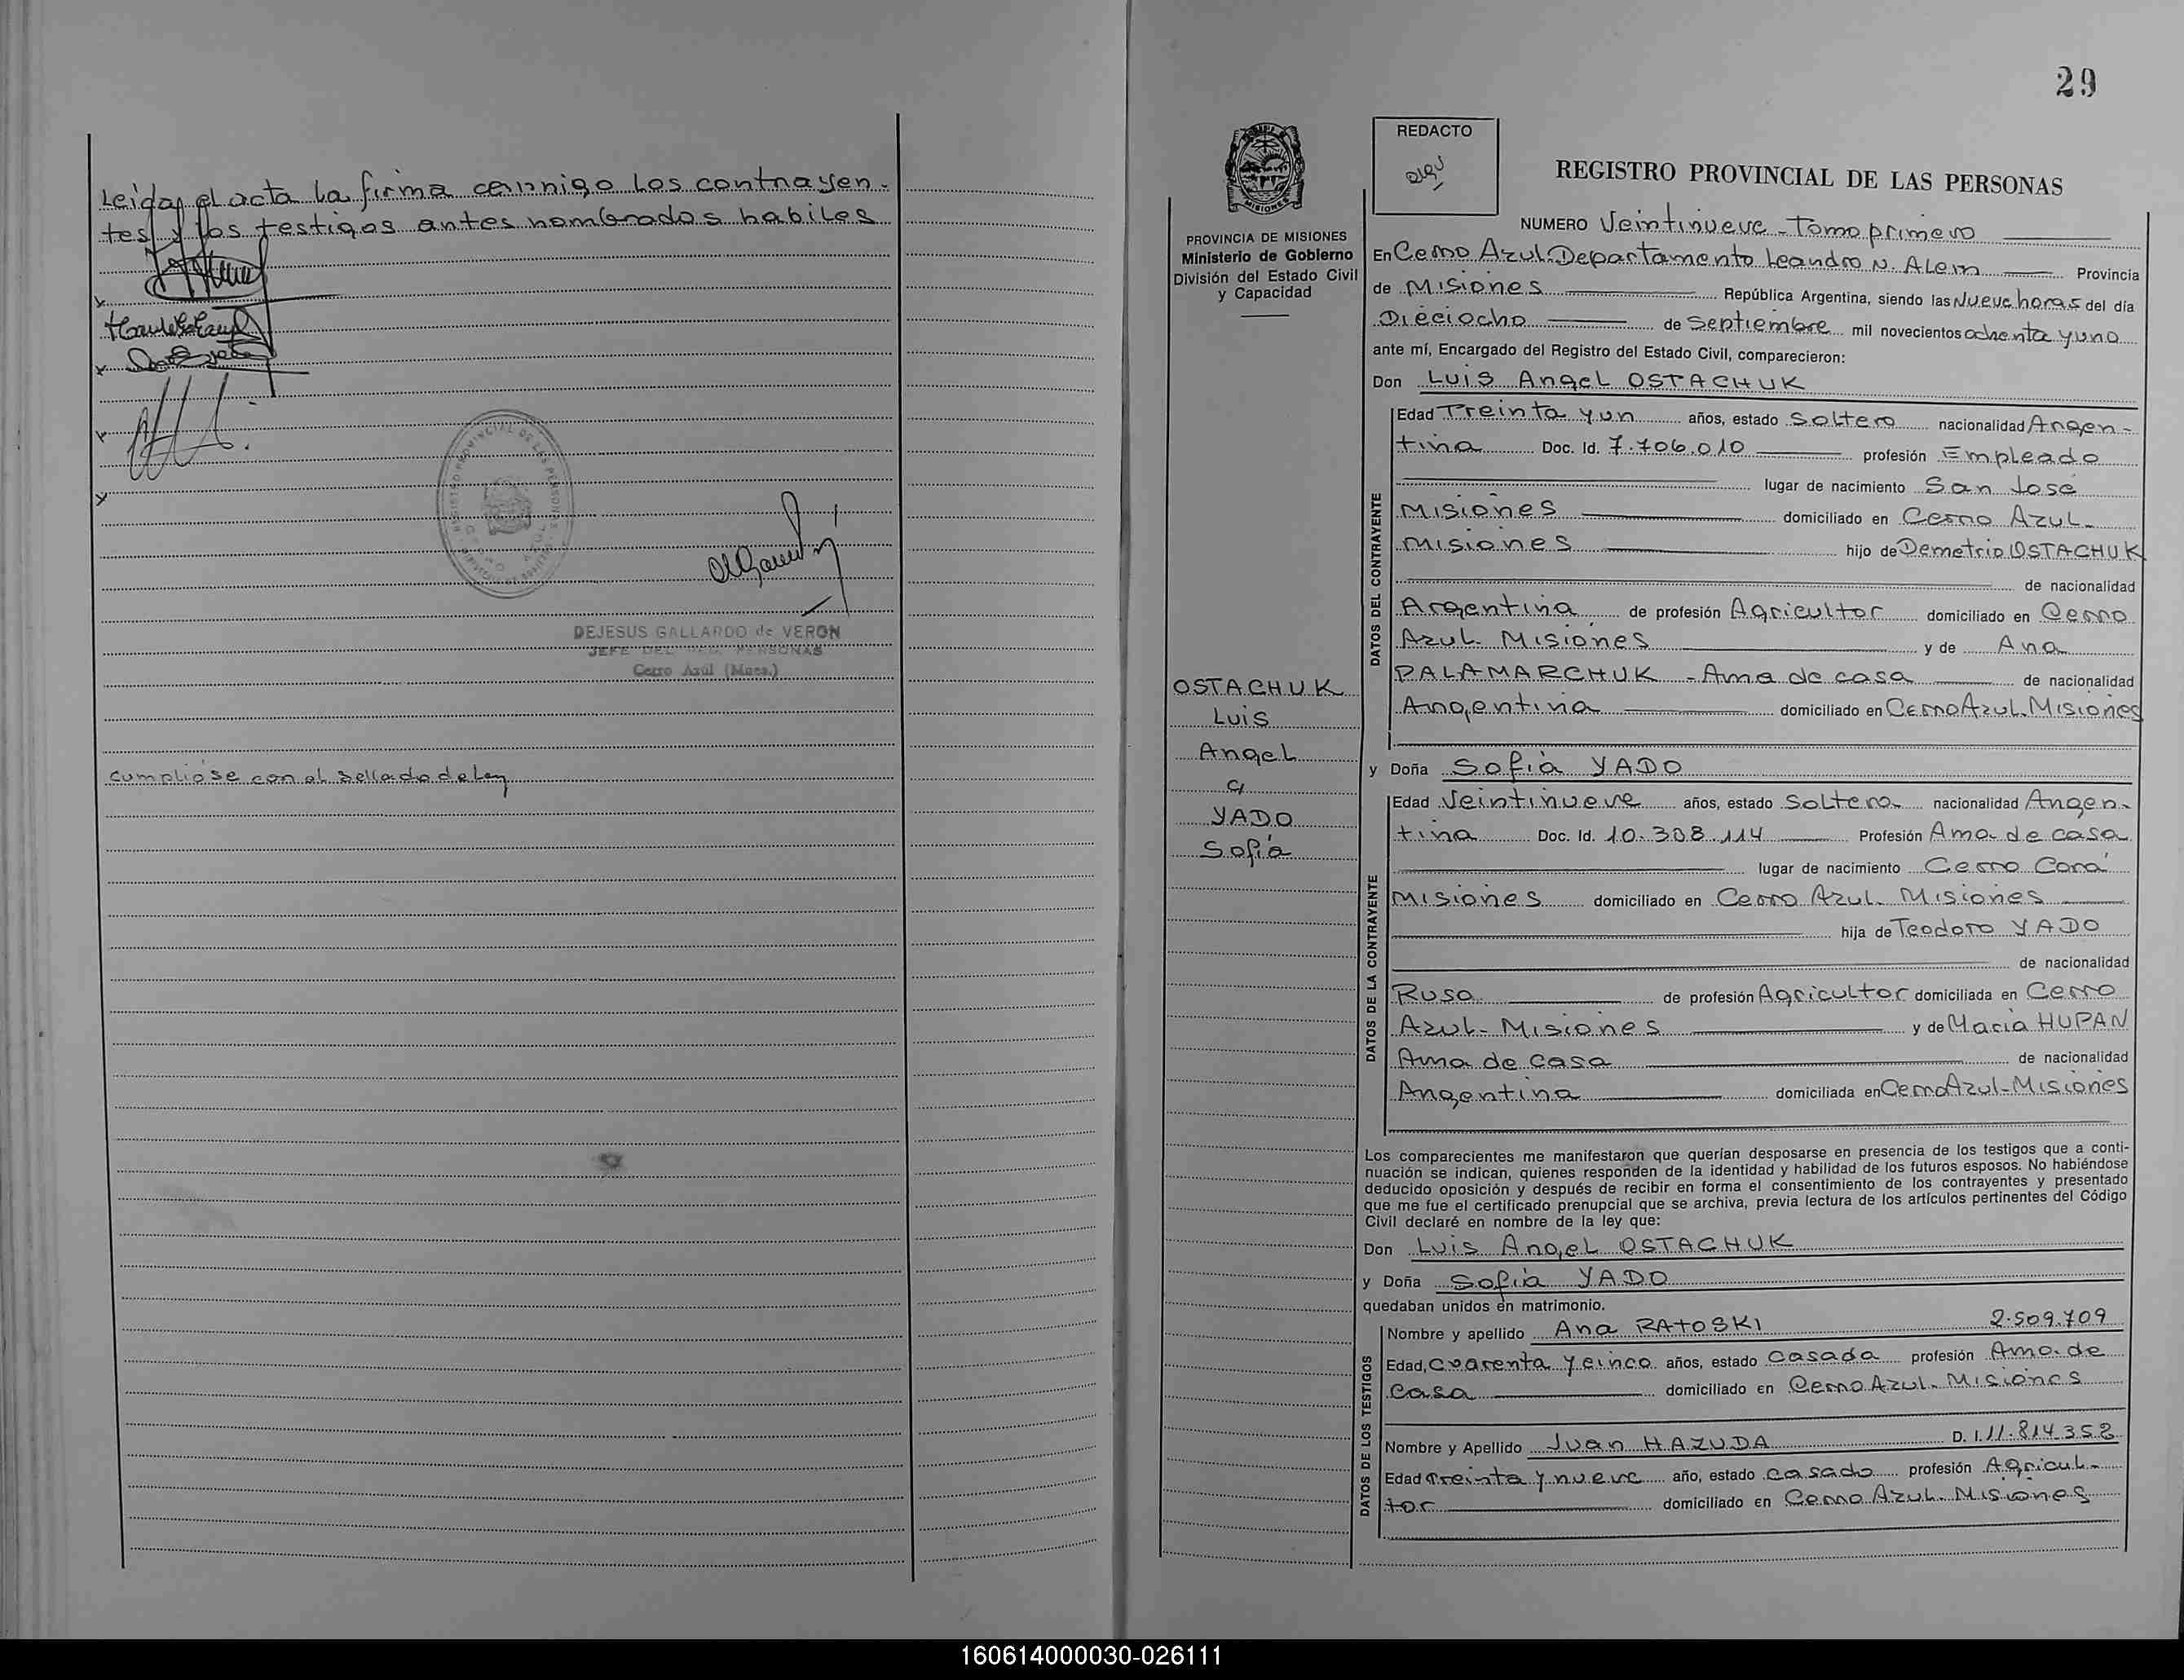 Leida el acta la firma conmigo los contrayen-
tes y los testigos antes nombrados habiles
x
x
x
x
REGISTRO PROVINCIAL DE LAS PERSONAS
DEJESUS GALLARDO de VERON
JEFE DEL REG. PERSONAS
Cerro Azúl (Mnes.)
cumpliose con el sellado de Ley
29
MISIONES
PROVINCIA DE MISIONES
Ministerio de Gobierno
División del Estado Civil
y Capacidad
OSTACHUK
Luis
Angel
c/
YADO
Sofia
REDACTO
REGISTRO PROVINCIAL DE LAS PERSONAS
NUMERO Veintinueve - Tomo primero
En Cerro Azul. Departamento Leandro N. Alem Provincia
de Misiones República Argentina, siendo las Nueve horas del día
Dieciocho de Septiembre mil novecientos ochenta y uno
ante mí, Encargado del Registro del Estado Civil, comparecieron:
Don Luis Angel OSTACHUK
DATOS DEL CONTRAYENTE
Edad Treinta y un años, estado Soltero nacionalidad Argen-
tina Doc. Id. 7.706.010 profesión Empleado
lugar de nacimiento San José
Misiones domiciliado en Cerro Azul-
Misiones hijo de Demetrio OSTACHUK
de nacionalidad
Argentina de profesión Agricultor domiciliado en Cerro
Azul- Misiones y de Ana
PALAMARCHUK - Ama de casa de nacionalidad
Argentina domiciliado en Cerro Azul. Misiones
y Doña Sofia YADO
DATOS DE LA CONTRAYENTE
Edad Veintinueve años, estado Soltera nacionalidad Argen-
tina Doc. Id. 10.308.114 Profesión Ama de casa
lugar de nacimiento Cerro Corá
Misiones domiciliado en Cerro Azul. Misiones
hija de Teodoro YADO
de nacionalidad
Rusa de profesión Agricultor domiciliada en Cerro
Azul- Misiones y de Maria HUPAN
Ama de casa de nacionalidad
Argentina domiciliada en Cerro Azul-Misiones
Los comparecientes me manifestaron que querían desposarse en presencia de los testigos que a conti-
nuación se indican, quienes responden de la identidad y habilidad de los futuros esposos. No habiéndose
deducido oposición y después de recibir en forma el consentimiento de los contrayentes y presentado
que me fue el certificado prenupcial que se archiva, previa lectura de los artículos pertinentes del Código
Civil declaré en nombre de la ley que:
Don Luis Angel OSTACHUK
y Doña Sofia YADO
quedaban unidos en matrimonio.
DATOS DE LOS TESTIGOS
Nombre y apellido Ana RATOSKI 2.509.709
Edad, Cuarenta y cinco años, estado Casada profesión Ama de
Casa domiciliado en Cerro Azul- Misiones
Nombre y Apellido Juan HAZUDA D. I. 11.814.352
Edad Treinta y nueve año, estado casado profesión Agricul-
tor domiciliado en Cerro Azul- Misiones
160614000030-026111